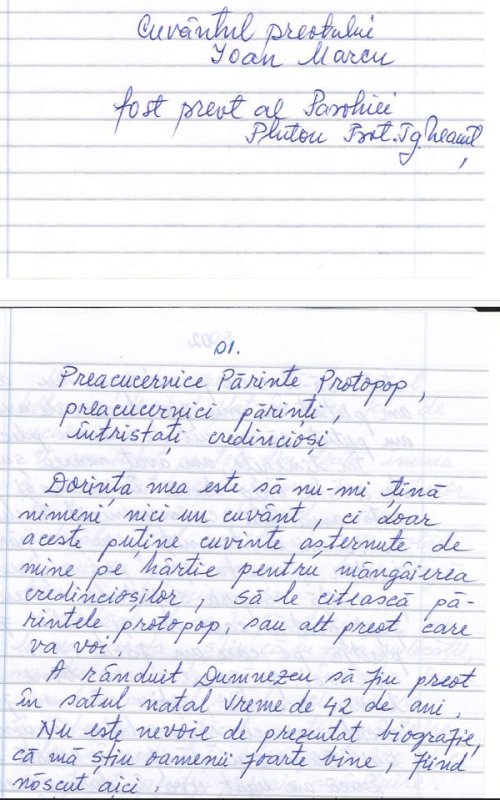 Cuvântul preotului
Ioan Marcu
fost preot al Parohiei
Pluton Prot. Tg. Neamț
01.
Preacucernice Părinte Protopop,
preacucernici părinți,
întristați credincioși
Dorința mea este să nu-mi țină
nimeni nici un cuvânt, ci doar
aceste puține cuvinte așternute de
mine pe hârtie pentru mângâierea
credincioșilor, să le citească pă-
rintele protopop, sau alt preot care
va voi.
A rânduit Dumnezeu să fiu preot
în satul natal vreme de 42 de ani.
Nu este nevoie de prezentat biografie,
că mă știu oamenii foarte bine, fiind
născut aici.